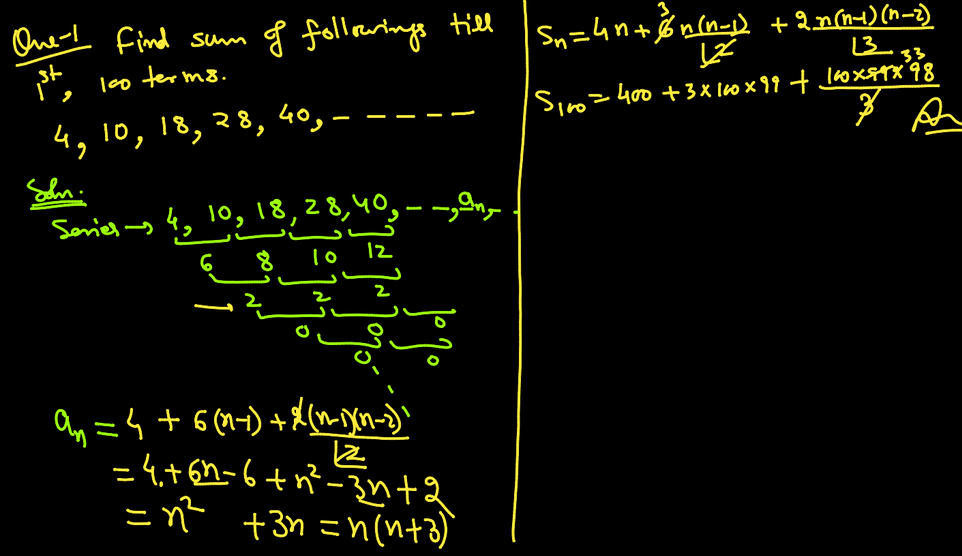 Que-1 Find sum of followings till
1st, 100 terms.
4, 10, 18, 28, 40, - - - - -
Soln.
Series → 4, 10, 18, 28, 40, - - -, an, - .
6 8 10 12
→ 2 2 2
0 0 0
0 0
an = 4 + 6(n-1) + 2(n-1)(n-2)/|2
= 4 + 6n - 6 + n² - 3n + 2
= n² + 3n = n(n+3)
Sn = 4n + 6 3 n(n-1)/|2 + 2 n(n-1)(n-2)/|3
S100 = 400 + 3×100×99 + 100×99×98 33/3
An